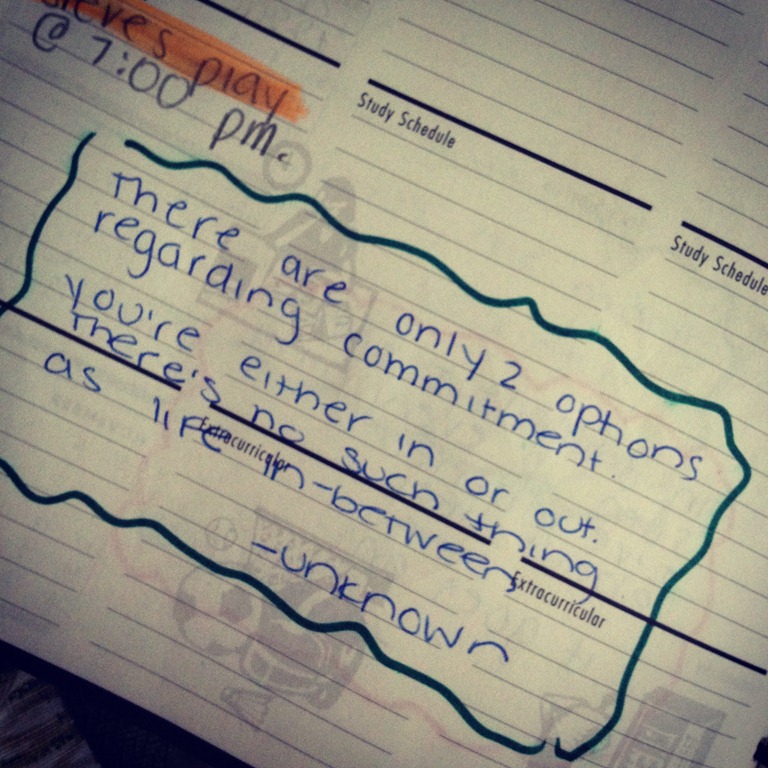 play
@ 7:00
pm.
Study Schedule
Study Schedule
There are only 2 options
regarding commitment.
you're either in or out.
There's no such thing
as life in-between
-unknown
Extracurricular
Extracurricular